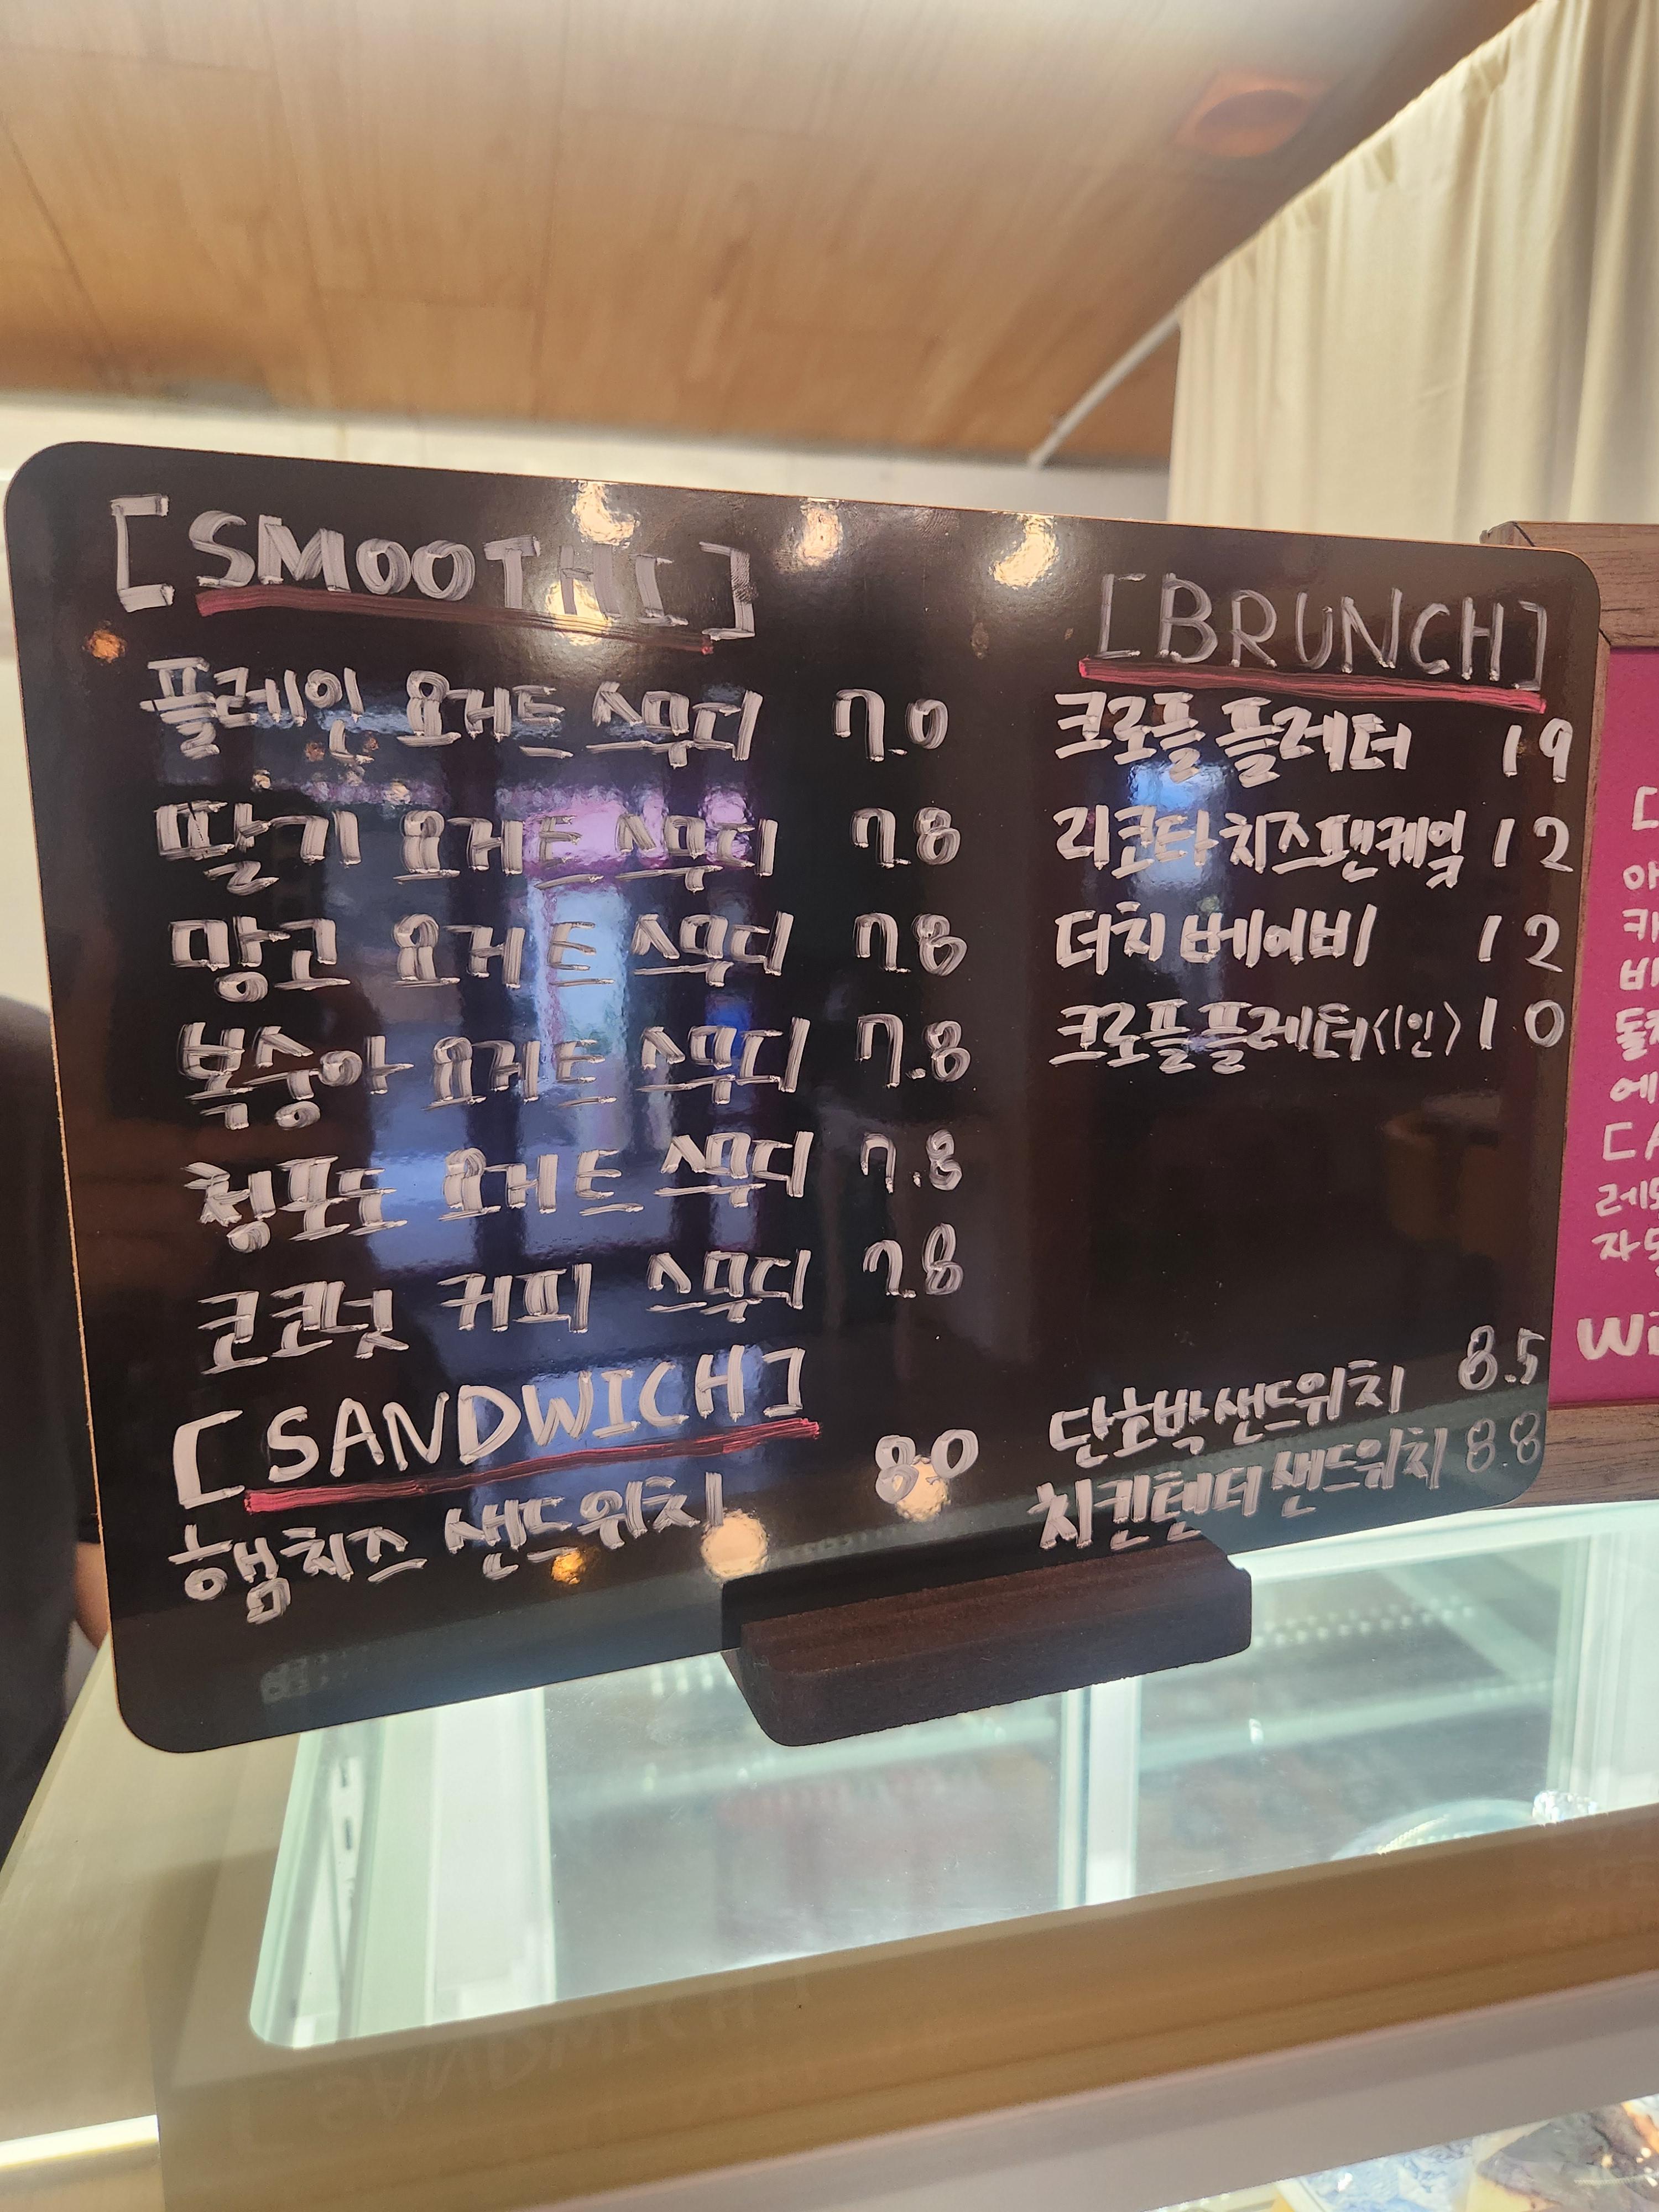 [SMOOTHI]
플레인 요거트 스무디 7.0
딸기 요거트 스무디 7.8
망고 요거트 스무디 7.8
복숭아 요거트 스무디 7.8
청포도 요거트 스무디 7.8
코코넛 커피 스무디 7.8
[BRUNCH]
크로플 플레터 19
리코타치즈팬케잌 12
더치베이비 12
크로플플레터(1인) 10
[SANDWICH]
햄치즈 샌드위치 8.0
단호박샌드위치 8.5
치킨텐더샌드위치 8.8